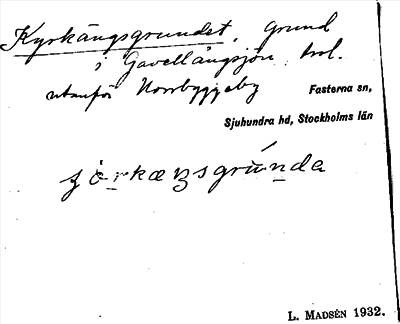 Kyrkängsgrundet, Grund
i Gavellångsjön, bel.
utanför Norrbyggeby
Fasterna sn,
Sjuhundra hd, Stockholms län
L. MADSÉN 1932.